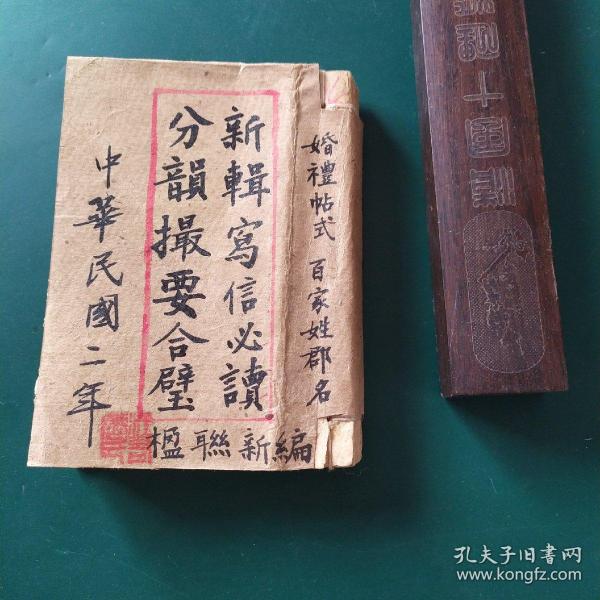 婚禮帖式 百家姓郡名
新輯寫信必讀
分韻撮要合璧
中華民國二年
楹聯新編
孔夫子旧书网
www.kongfz.com